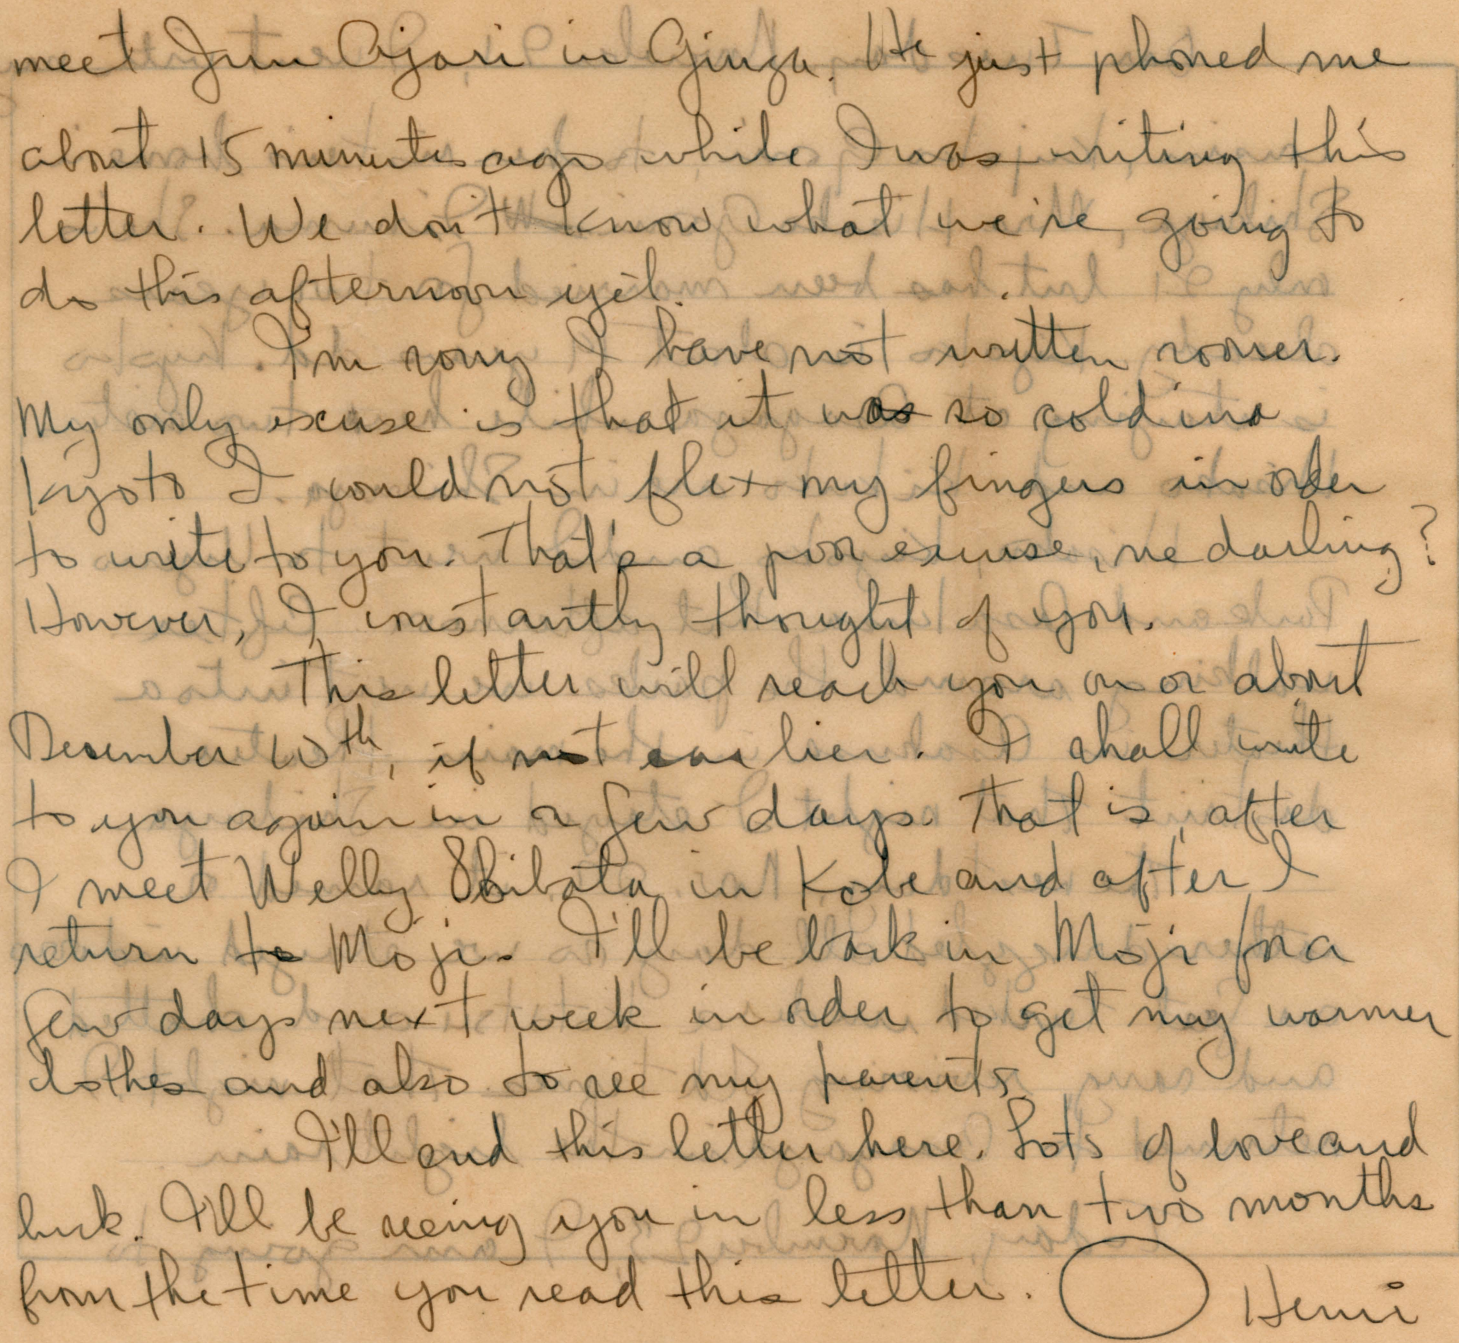 meet Jun Ajari in Ginza. He just phoned me
about 15 minutes ago while I was writing this
letter. We don't know what we're going to
do this afternoon yet.
I'm sorry I have not written sooner.
My only excuse is that it was so cold in
Kyoto I could not flex my fingers in order
to write to you. That's a poor excuse, ne darling?
However, I constantly thought of you.
This letter will reach you on or about
December 10th, if not earlier. I shall write
to you again in a few days. That is, after
I meet Welly Shibata in Kobe and after I
return to Moji. I'll be back in Moji for a
few days next week in order to get my warmer
clothes and also to see my parents.
I'll end this letter here. Lots of love and
luck. I'll be seeing you in less than two months
from the time you read this letter. Henri